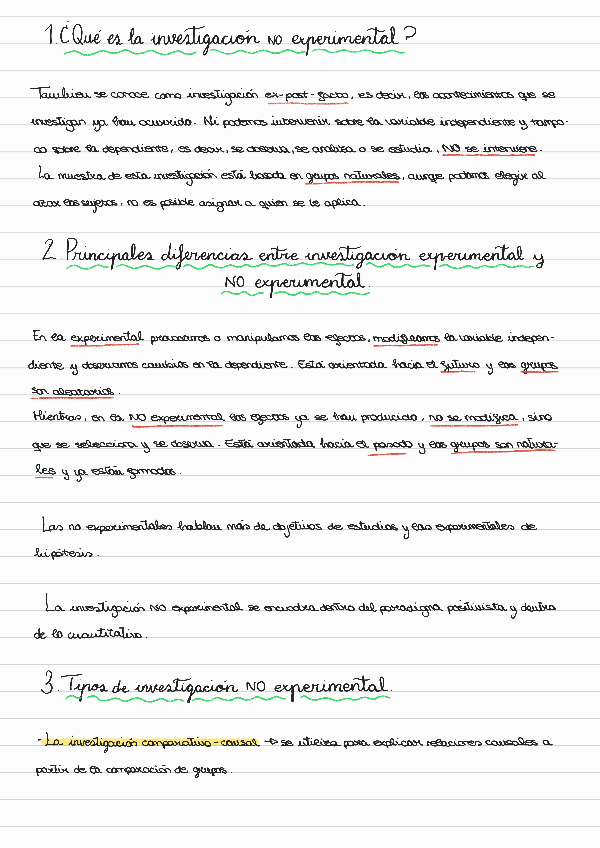 1. ¿Qué es la investigación NO experimental?
También se conoce como investigación ex-post-facto, es decir, los acontecimientos que se
investigan ya han ocurrido. Ni podemos intervenir sobre la variable independiente y tampo-
co sobre la dependiente, es decir, se observa, se analiza o se estudia, NO se interviene.
La muestra de esta investigación está basada en grupos naturales, aunque podamos elegir al
azar los sujetos, no es posible asignar a quien se le aplica.
2. Principales diferencias entre investigación experimental y
NO experimental.
En la experimental provocamos o manipulamos los efectos, modificamos la variable indepen-
diente y observamos cambios en la dependiente. Está orientada hacia el futuro y los grupos
son aleatorios.
Mientras, en la NO experimental los efectos ya se han producido, no se modifica, sino
que se selecciona y se observa. Está orientada hacia el pasado y los grupos son natura-
les y ya están formados.
Las no experimentales hablan más de objetivos de estudios y las experimentales de
hipótesis.
La investigación NO experimental se encuadra dentro del paradigma positivista y dentro
de lo cuantitativo.
3. Tipos de investigación NO experimental.
- La investigación comparativo-causal → se utiliza para explicar relaciones causales a
partir de la comparación de grupos.